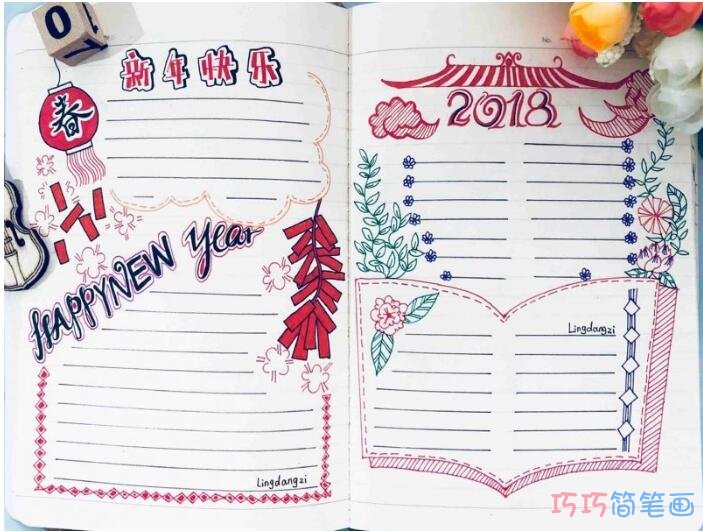 0
07
新年快乐
春
HAPPYNEW Year
Lingdangzi
No.
2018
Lingdangzi
巧巧简笔画